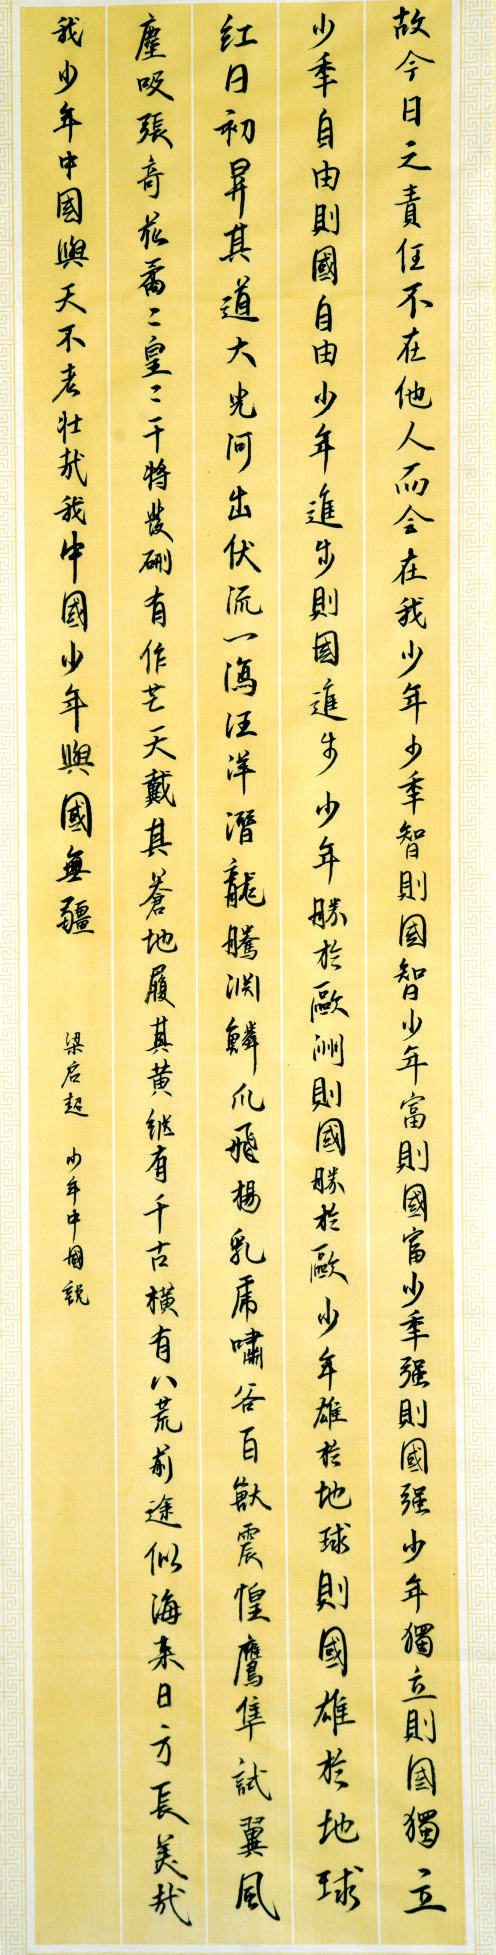 故今日之責任不在他人而全在我少年少年智則國智少年富則國富少年强則國强少年獨立則國獨立
少年自由則國自由少年進步則國進步少年勝於歐洲則國勝於歐少年雄於地球則國雄於地球
红日初昇其道大光河出伏流一瀉汪洋潛龍騰渊鱗爪飛揚乳虎嘯谷百獸震惶鷹隼試翼風
塵吸張奇花矞〻皇〻干將發硎有作芒天戴其蒼地履其黄继有千古横有八荒前途似海来日方長美哉
我少年中國與天不老壯哉我中國少年與國無疆
梁启超 少年中國説